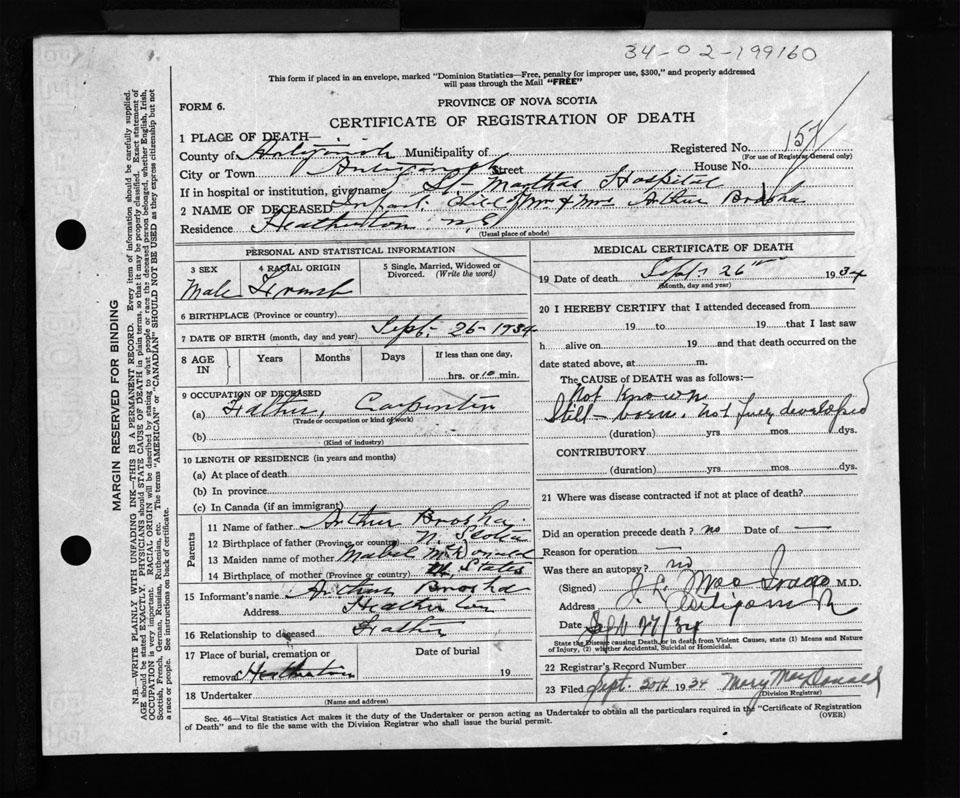 34-02-199160
This form if placed in an envelope, marked "Dominion Statistics—Free, penalty for improper use, $300," and properly addressed
will pass through the Mail "FREE"
FORM 6.
PROVINCE OF NOVA SCOTIA
CERTIFICATE OF REGISTRATION OF DEATH
1 PLACE OF DEATH—
Registered No. 157
(For use of Registrar General only)
County of Antigonish Municipality of
City or Town Antigonish Street House No.
If in hospital or institution, give name St. Marthas Hospital
2 NAME OF DECEASED Infant Child of Mr & Mrs Arthur Brosha
Residence Heatherton N.S.
(Usual place of abode)
PERSONAL AND STATISTICAL INFORMATION
3 SEX
Male
4 RACIAL ORIGIN
French
5 Single, Married, Widowed or
Divorced
(Write the word)
6 BIRTHPLACE (Province or country)
7 DATE OF BIRTH (month, day and year) Sept. 26-1934
8 AGE
IN
Years
Months
Days
If less than one day,
hrs. or 10 min.
9 OCCUPATION OF DECEASED
(a) Father, Carpenter
(Trade or occupation or kind of work)
(b)
(Kind of industry)
10 LENGTH OF RESIDENCE (in years and months)
(a) At place of death
(b) In province
(c) In Canada (if an immigrant)
Parents
11 Name of father Arthur Brosha
12 Birthplace of father (Province or country) N. Scotia
13 Maiden name of mother Mabel McDonald
14 Birthplace of mother (Province or country) States
15 Informant's name Arthur Brosha
Address Heatherton
16 Relationship to deceased Father
17 Place of burial, cremation or
removal Heatherton
Date of burial
19
18 Undertaker
(Name and address)
MEDICAL CERTIFICATE OF DEATH
19 Date of death Sept 26th 1934
(Month, day and year)
20 I HEREBY CERTIFY that I attended deceased from
19 to 19 that I last saw
h alive on 19 and that death occurred on the
date stated above, at m.
The CAUSE OF DEATH was as follows:—
Not known
Still-born. not fully developed
(duration) yrs mos dys.
CONTRIBUTORY
(duration) yrs mos dys.
21 Where was disease contracted if not at place of death?
Did an operation precede death? no Date of —
Reason for operation —
Was there an autopsy? no
(Signed) J. L. M.D.
Address Antigonish
Date Sept 27/34
State the Disease causing Death, or in death from Violent Causes, state (1) Means and Nature
of Injury, (2) whether Accidental, Suicidal or Homicidal.
22 Registrar's Record Number
23 Filed Sept. 20th 1934 Mary MacDonald
(Division Registrar)
Sec. 46—Vital Statistics Act makes it the duty of the Undertaker or person acting as Undertaker to obtain all the particulars required in the "Certificate of Registration
of Death" and to file the same with the Division Registrar who shall issue the burial permit.
(OVER)
MARGIN RESERVED FOR BINDING
N.B.—WRITE PLAINLY WITH UNFADING INK—THIS IS A PERMANENT RECORD. Every item of information should be carefully supplied.
AGE should be stated EXACTLY. PHYSICIANS should STATE CAUSE OF DEATH in plain terms, so that it may be properly classified. Exact statement of
OCCUPATION is very important. RACIAL ORIGIN will be described by stating to what people or race the deceased person belonged, whether English, Irish,
Scottish, French, German, Russian, Ruthenian, etc. The terms "AMERICAN" or "CANADIAN" SHOULD NOT BE USED as they express citizenship but not
a race or people. See instructions on back of certificate.